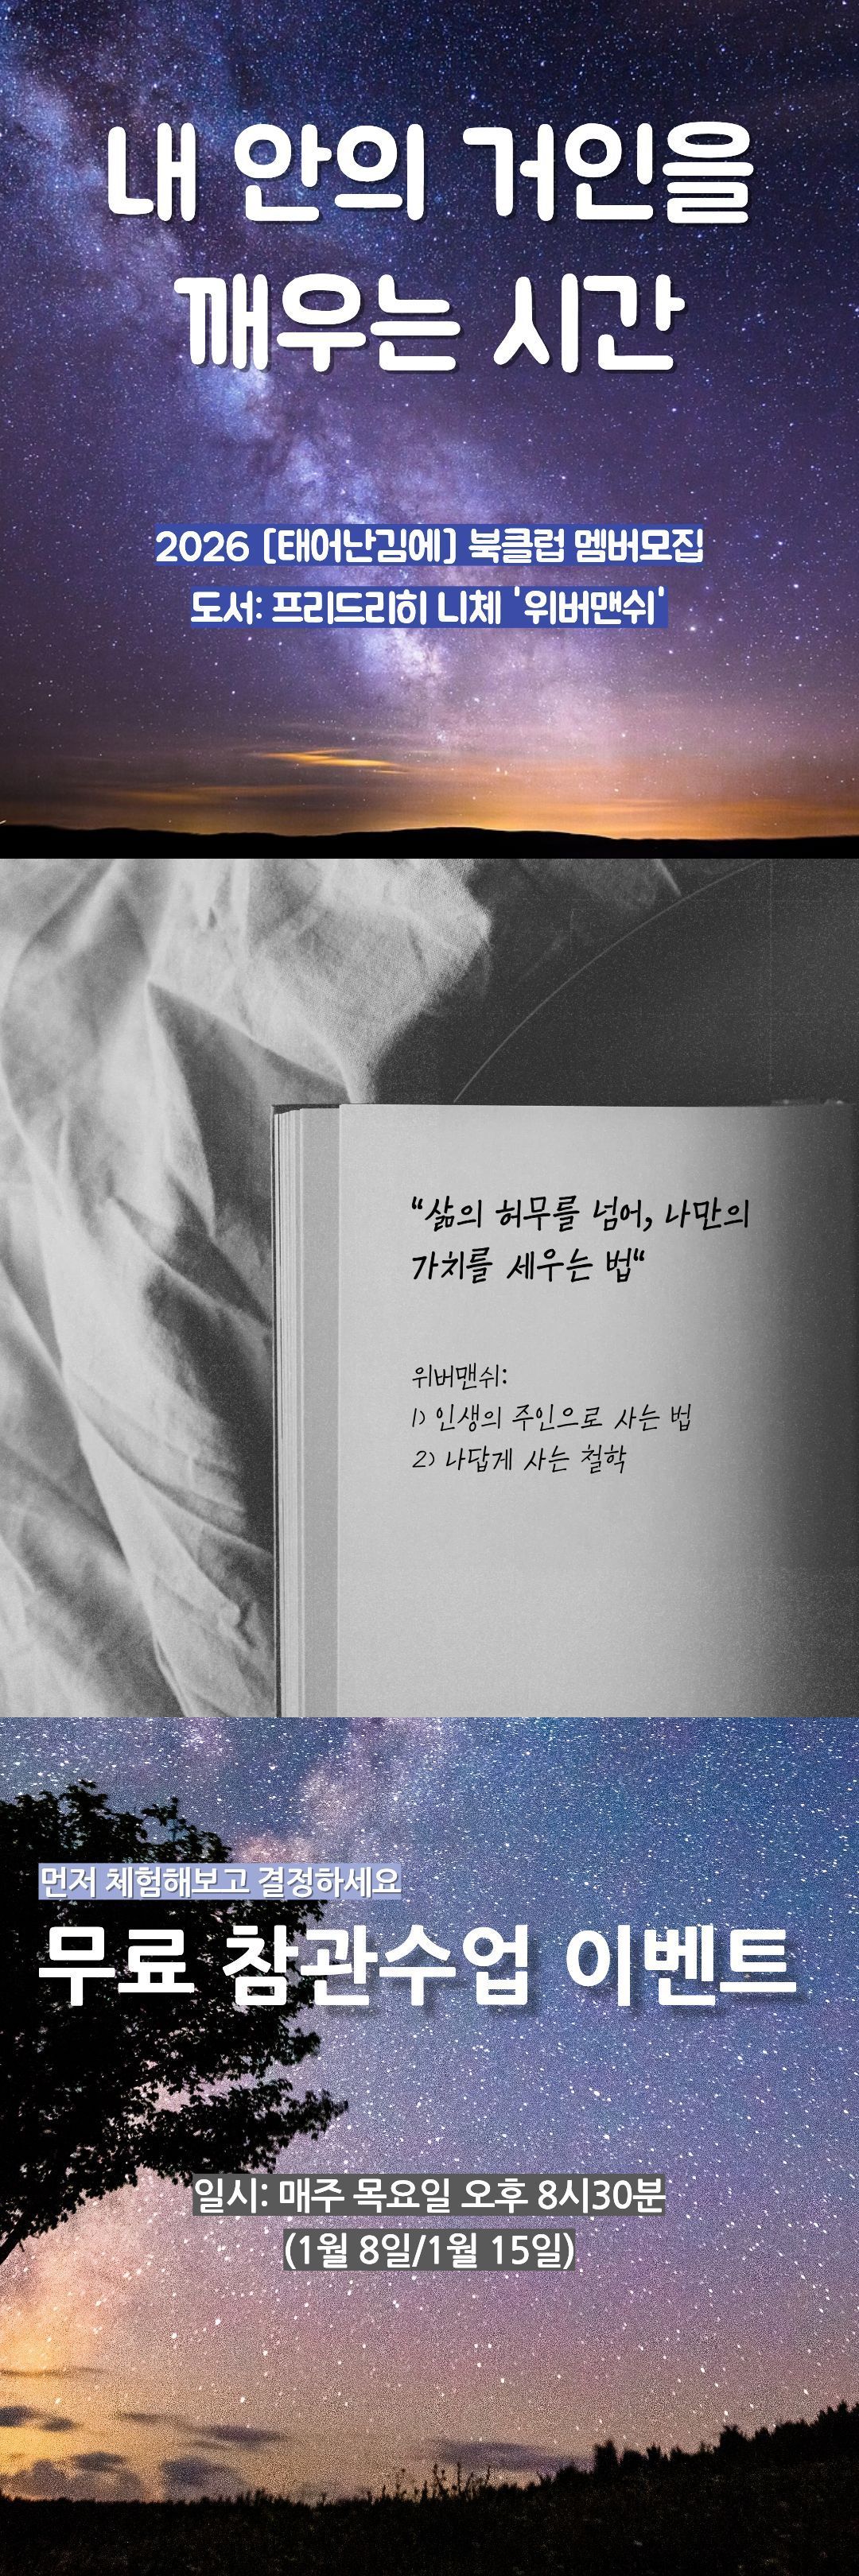 내 안의 거인을
깨우는 시간
2026 [태어난김에] 북클럽 멤버모집
도서: 프리드리히 니체 '위버맨쉬'
“삶의 허무를 넘어, 나만의
가치를 세우는 법“
위버맨쉬:
1) 인생의 주인으로 사는 법
2) 나답게 사는 철학
먼저 체험해보고 결정하세요
무료 참관수업 이벤트
일시: 매주 목요일 오후 8시30분
(1월 8일/1월 15일)